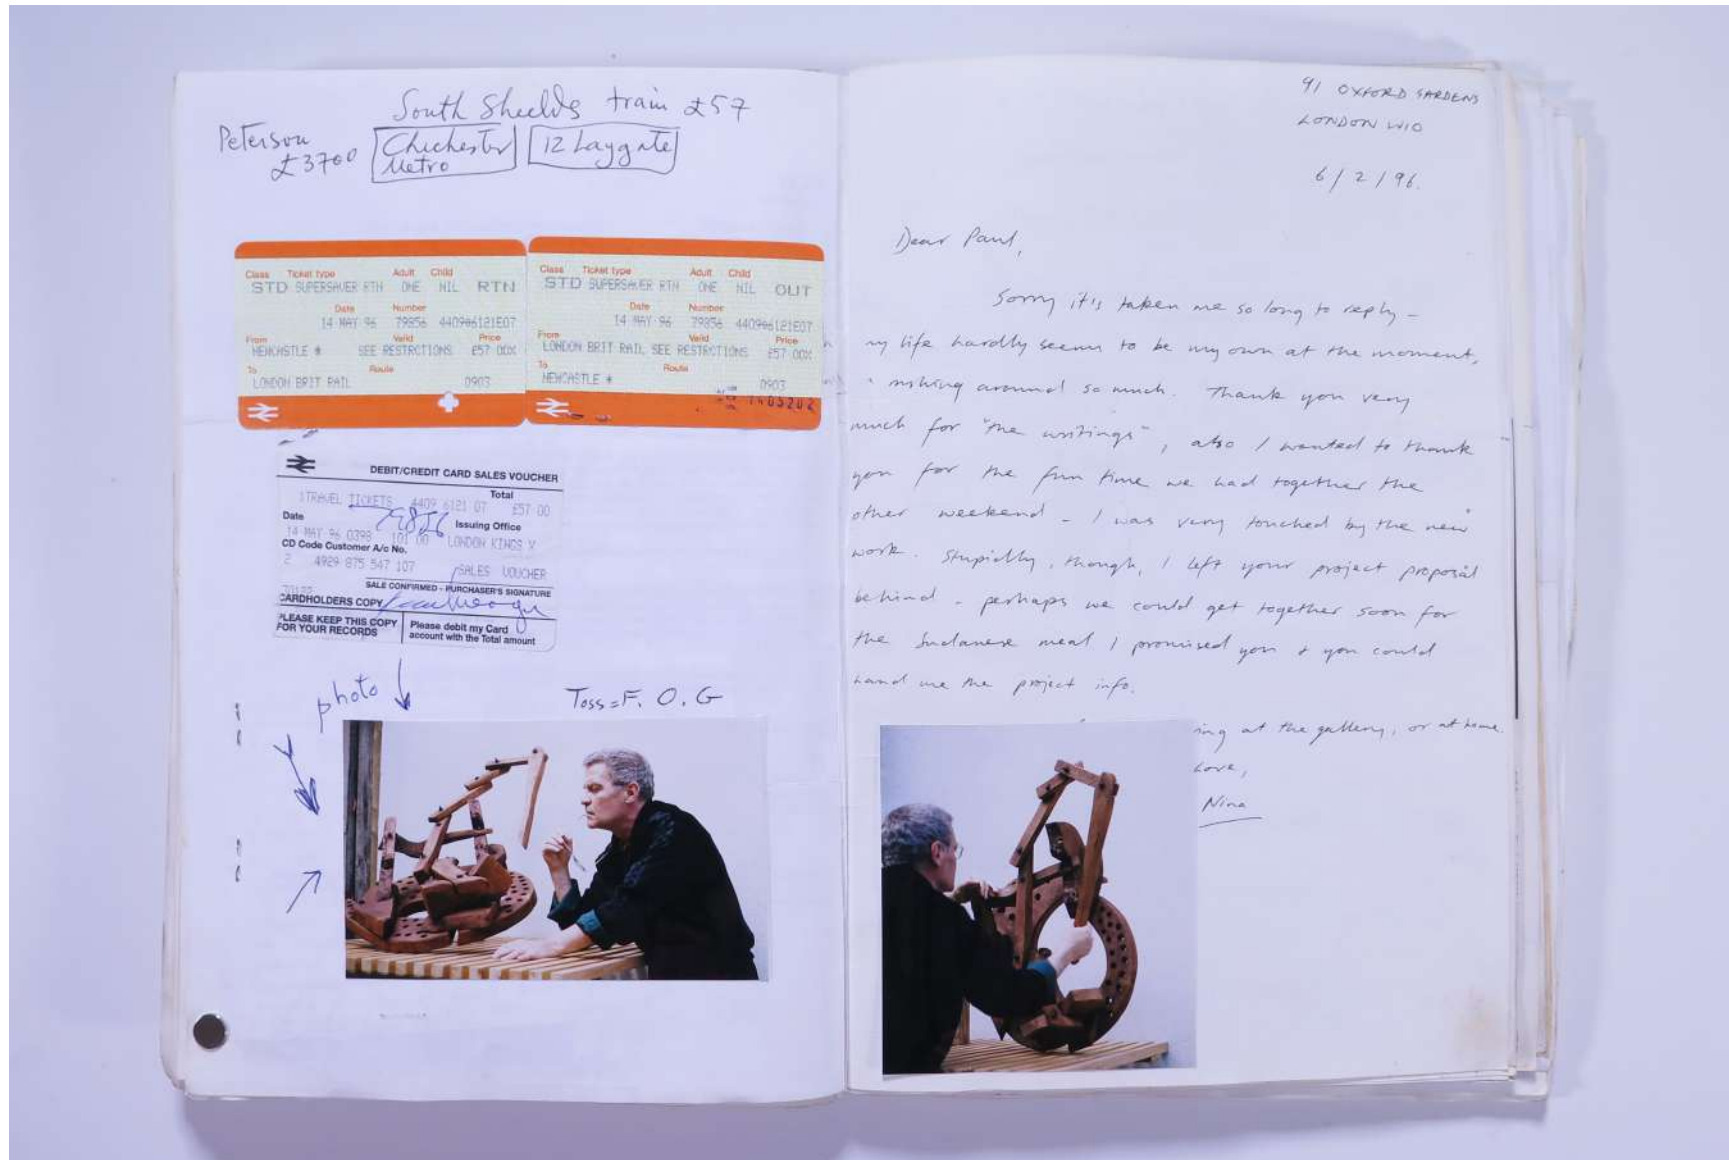 South Shields train £57
Peterson
£3700
Chichester
Metro
12 Laygate
Class Ticket type Adult Child
STD SUPERSAVER RTN ONE NIL RTN
Date Number
14 MAY 96 79856 4409 6121E07
From Valid Price
NEWCASTLE * SEE RESTRCTIONS £57 00X
To Route
LONDON BRIT RAIL 0903
Class Ticket type Adult Child
STD SUPERSAVER RTN ONE NIL OUT
Date Number
14 MAY 96 79856 4409 6121E07
From Valid Price
LONDON BRIT RAIL SEE RESTRCTIONS £57 00X
To Route
NEWCASTLE * 0903
DEBIT/CREDIT CARD SALES VOUCHER
Total
1TRAVEL TICKETS 4409 6121 07 £57 00
79856
Date Issuing Office
14 MAY 96 0398 101 00 LONDON KINGS X
CD Code Customer A/c No.
2 4929 875 547 107 SALES VOUCHER
SALE CONFIRMED - PURCHASER'S SIGNATURE
CARDHOLDERS COPY
PLEASE KEEP THIS COPY
FOR YOUR RECORDS
Please debit my Card
account with the Total amount
photo
Toss=F.O.G
91 OXFORD GARDENS
LONDON W10
6/2/96.
Dear Paul,
Sorry it's taken me so long to reply –
my life hardly seems to be my own at the moment,
rushing around so much. Thank you very
much for "the writings", also I wanted to thank
you for the fun time we had together the
other weekend – I was very touched by the new
work. Stupidly, though, I left your project proposal
behind – perhaps we could get together soon for
the Sudanese meal I promised you & you could
hand me the project info.
ing at the gallery, or at home.
Love,
Nina